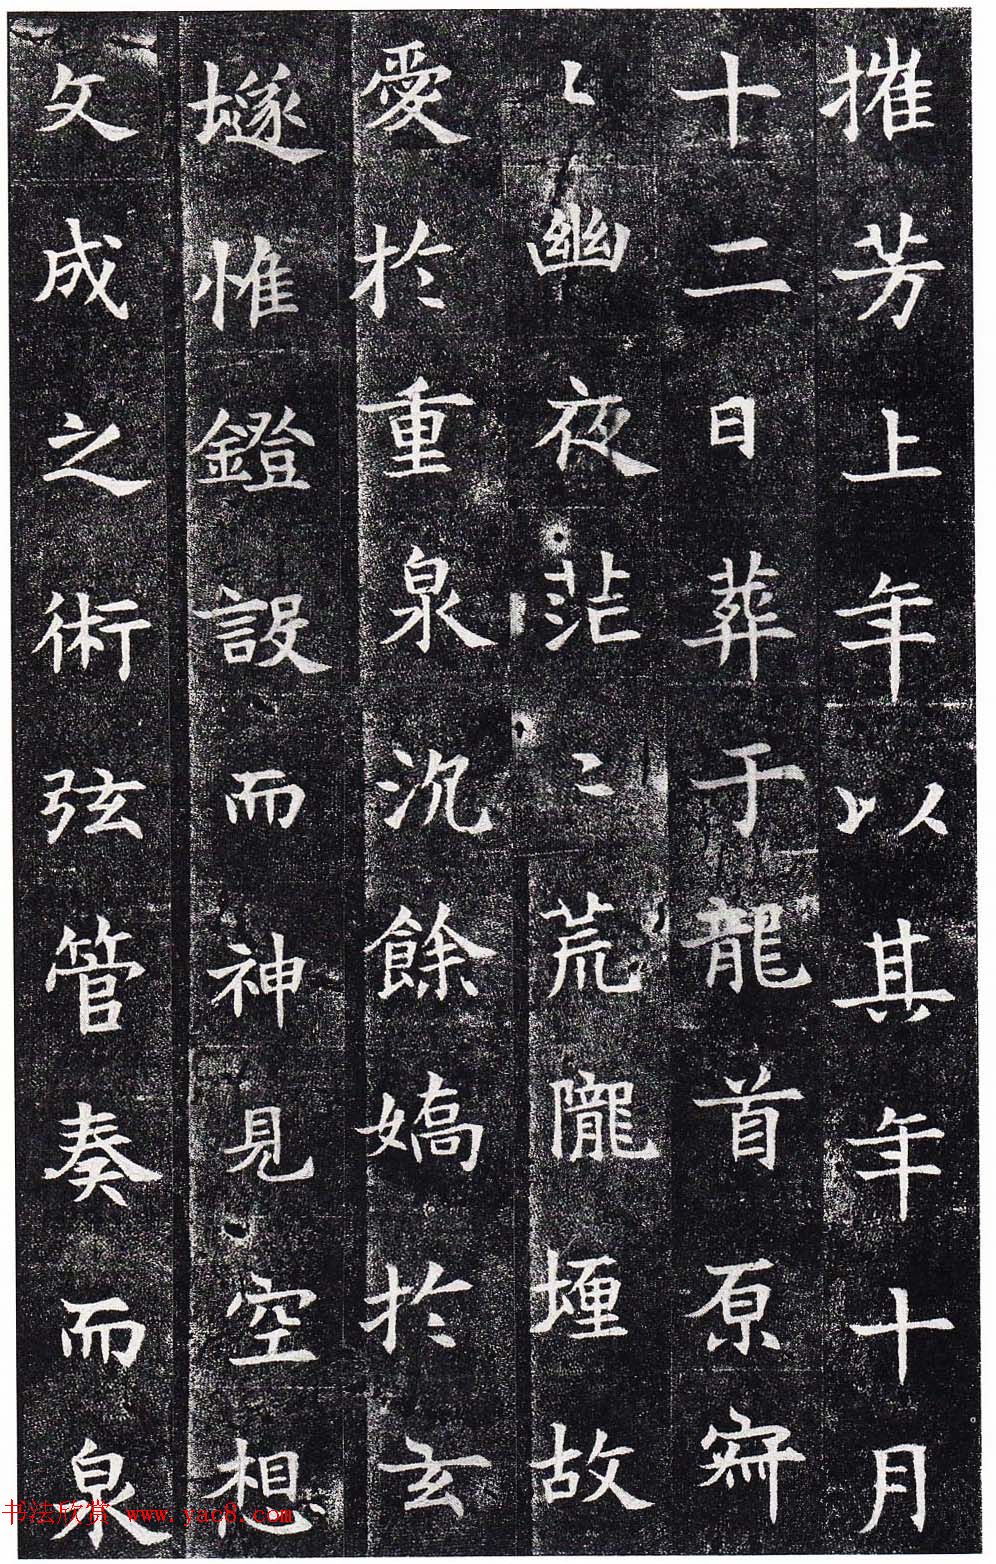 摧芳上年以其年十月
十二日葬于龍首原寂
〻幽夜茫〻荒隴堙故
愛於重泉沉餘嬌於玄
隧惟鐙設而神見空想
文成之術弦管奏而泉
书法欣赏 www.yac8.com